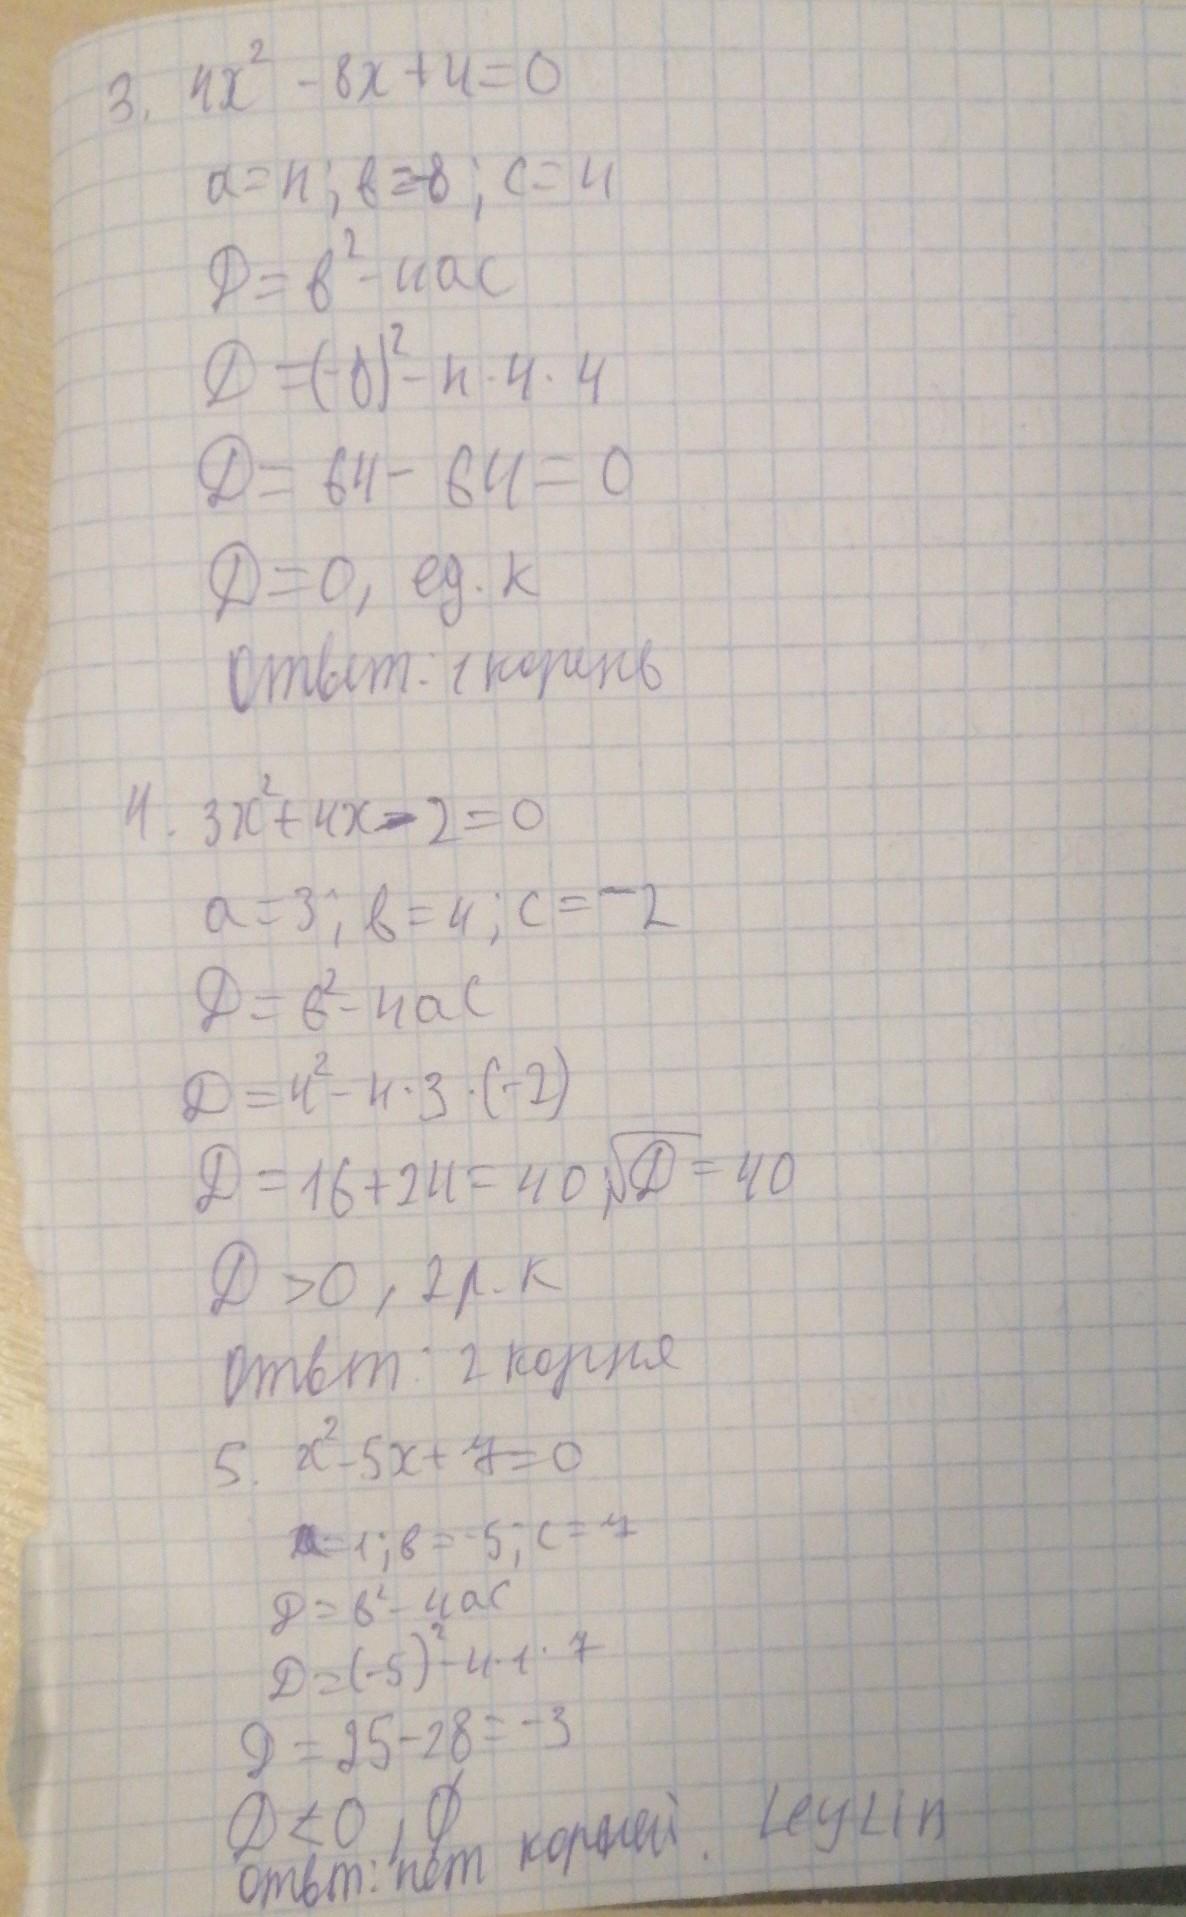 3. 4x² - 8x + 4 = 0
a = 4; в = -8; c = 4
D = в² - 4ac
D = (-8)² - 4 · 4 · 4
D = 64 - 64 = 0
D = 0, ед. к
Ответ: 1 корень
4. 3x² + 4x - 2 = 0
a = 3; в = 4; c = -2
D = в² - 4ac
D = 4² - 4 · 3 · (-2)
D = 16 + 24 = 40, √D = 40
D > 0, 2 р. к
Ответ: 2 корня
5. x² - 5x + 7 = 0
a = 1; в = -5; c = 7
D = в² - 4ac
D = (-5)² - 4 · 1 · 7
D = 25 - 28 = -3
D < 0, ∅
Ответ: нет корней. LeyLin